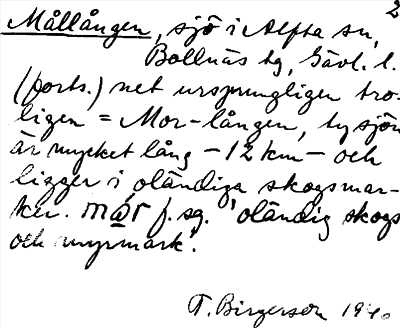 2
Mållången, sjö i Alfta sn,
Bollnäs tg, Gävl. l.
(forts.) net ursprungligen tro-
ligen = Mor-lången, ty sjön
är mycket lång - 12 km - och
ligger i oländiga skogsmar-
ker. mår f. sg. 'oländig skogs
och myrmark'.
T. Birgerson 19